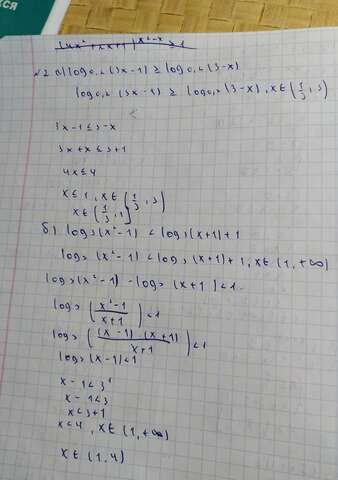 хся
№2 a) log₀,₂ (3x-1) ≥ log₀,₂ (3-x)
log₀,₂ (3x-1) ≥ log₀,₂ (3-x), x∈(1/3, 3)
3x-1≤3-x
3x+x≤3+1
4x≤4
x≤1, x∈(1/3, 3)
x∈(1/3, 1]
б) log₃(x²-1) < log₃(x+1)+1
log₃ (x²-1) < log₃ (x+1)+1, x∈(1,+∞)
log₃(x²-1) - log₃ (x+1) < 1
log₃ ((x²-1)/(x+1)) < 1
log₃ (((x-1)·(x+1))/(x+1)) < 1
log₃ (x-1) < 1
x-1<3¹
x-1<3
x<3+1
x<4, x∈(1,+∞)
x∈(1,4)